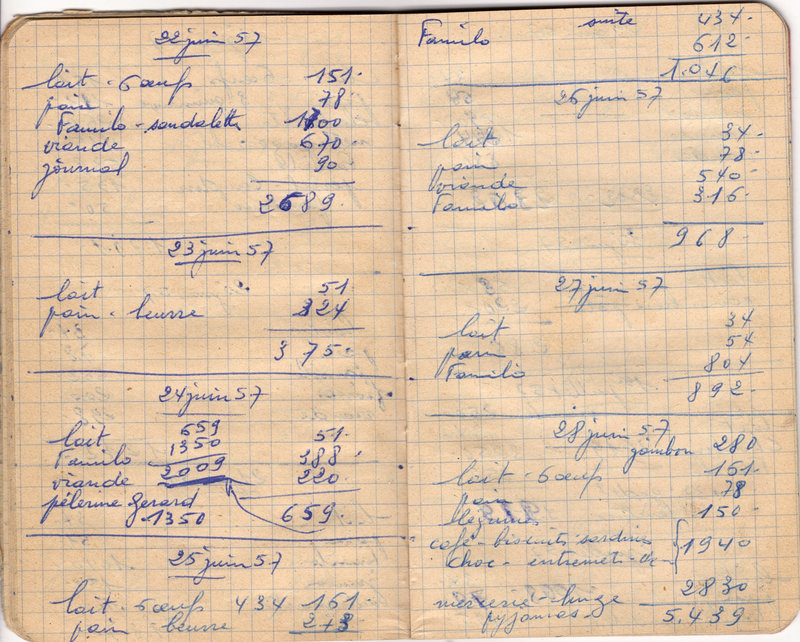 22 juin 57
lait - 6 œufs 151.
pain 78
Familo - sandalettes 1700
viande 670.
journal 90.
2689.
23 juin 57
lait 51.
pain - beurre 324
375.
24 juin 57
lait 659 51.
Familo 1350 388.
viande 2009 220
pélerine Gérard
1350 659.
25 juin 57
lait - 6 œufs 434 161.
pain - beurre 273
suite 434.
Familo 612.
1.046
26 juin 57
lait 34.
pain 78.
viande 540.
Familo 316.
968.
27 juin 57
lait 34
pain 54
Familo 804
892.
28 juin 57
jambon 280
lait - 6 œufs 161.
pain 78
légumes 150.
café - biscuits sardines
choc - entremets - 1940
mercerie - linge 2830
pyjamas 5.439.